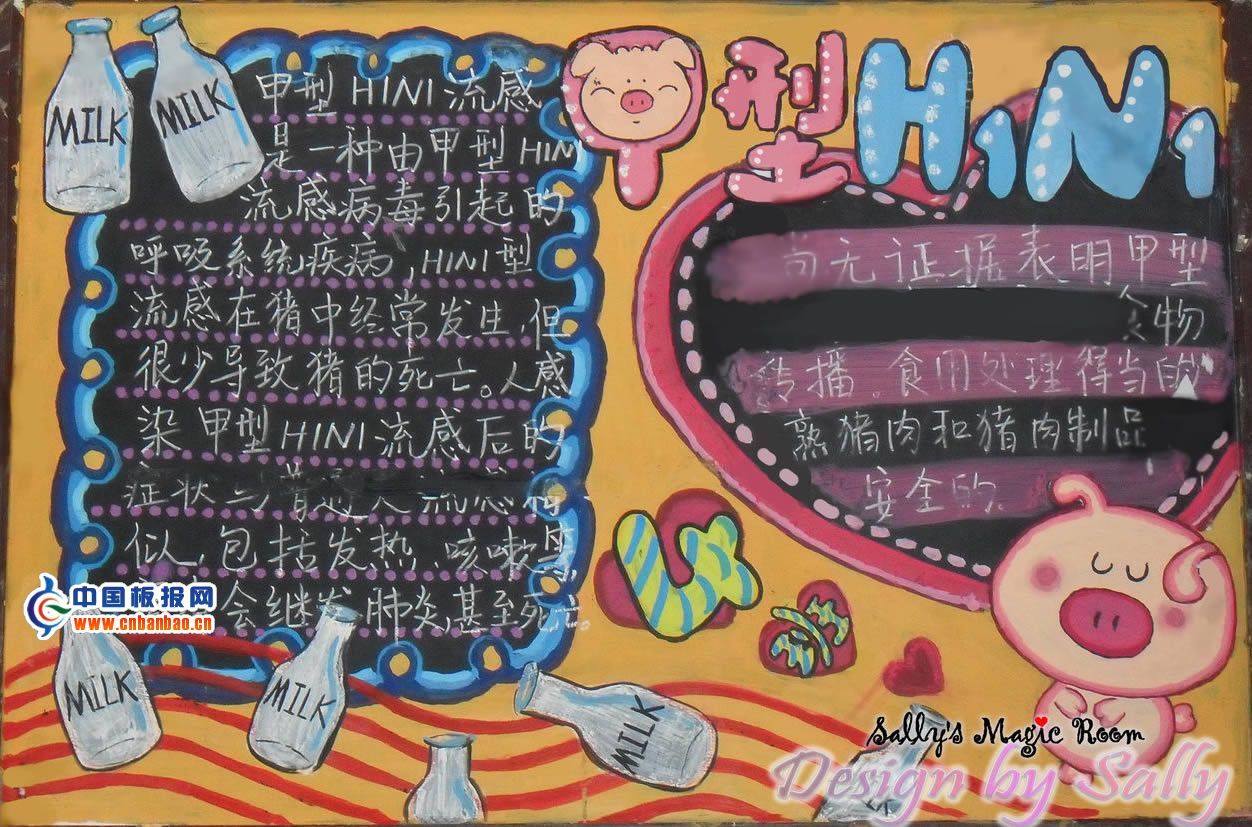 MILK
MILK
甲型H1N1流感
是一种由甲型H1N
流感病毒引起的
呼吸系统疾病,H1N1型
流感在猪中经常发生,但
很少导致猪的死亡。人感
染甲型H1N1流感后的
症状与普通人流感相
似,包括发热、咳嗽
会继发肺炎,甚至死
中国板报网
www.cnbanbao.cn
甲型H1N1
尚无证据表明甲型
物
传播。食用处理得当的
熟猪肉和猪肉制品
安全的。
MILK
MILK
MILK
Sally's Magic Room
Design by Sally